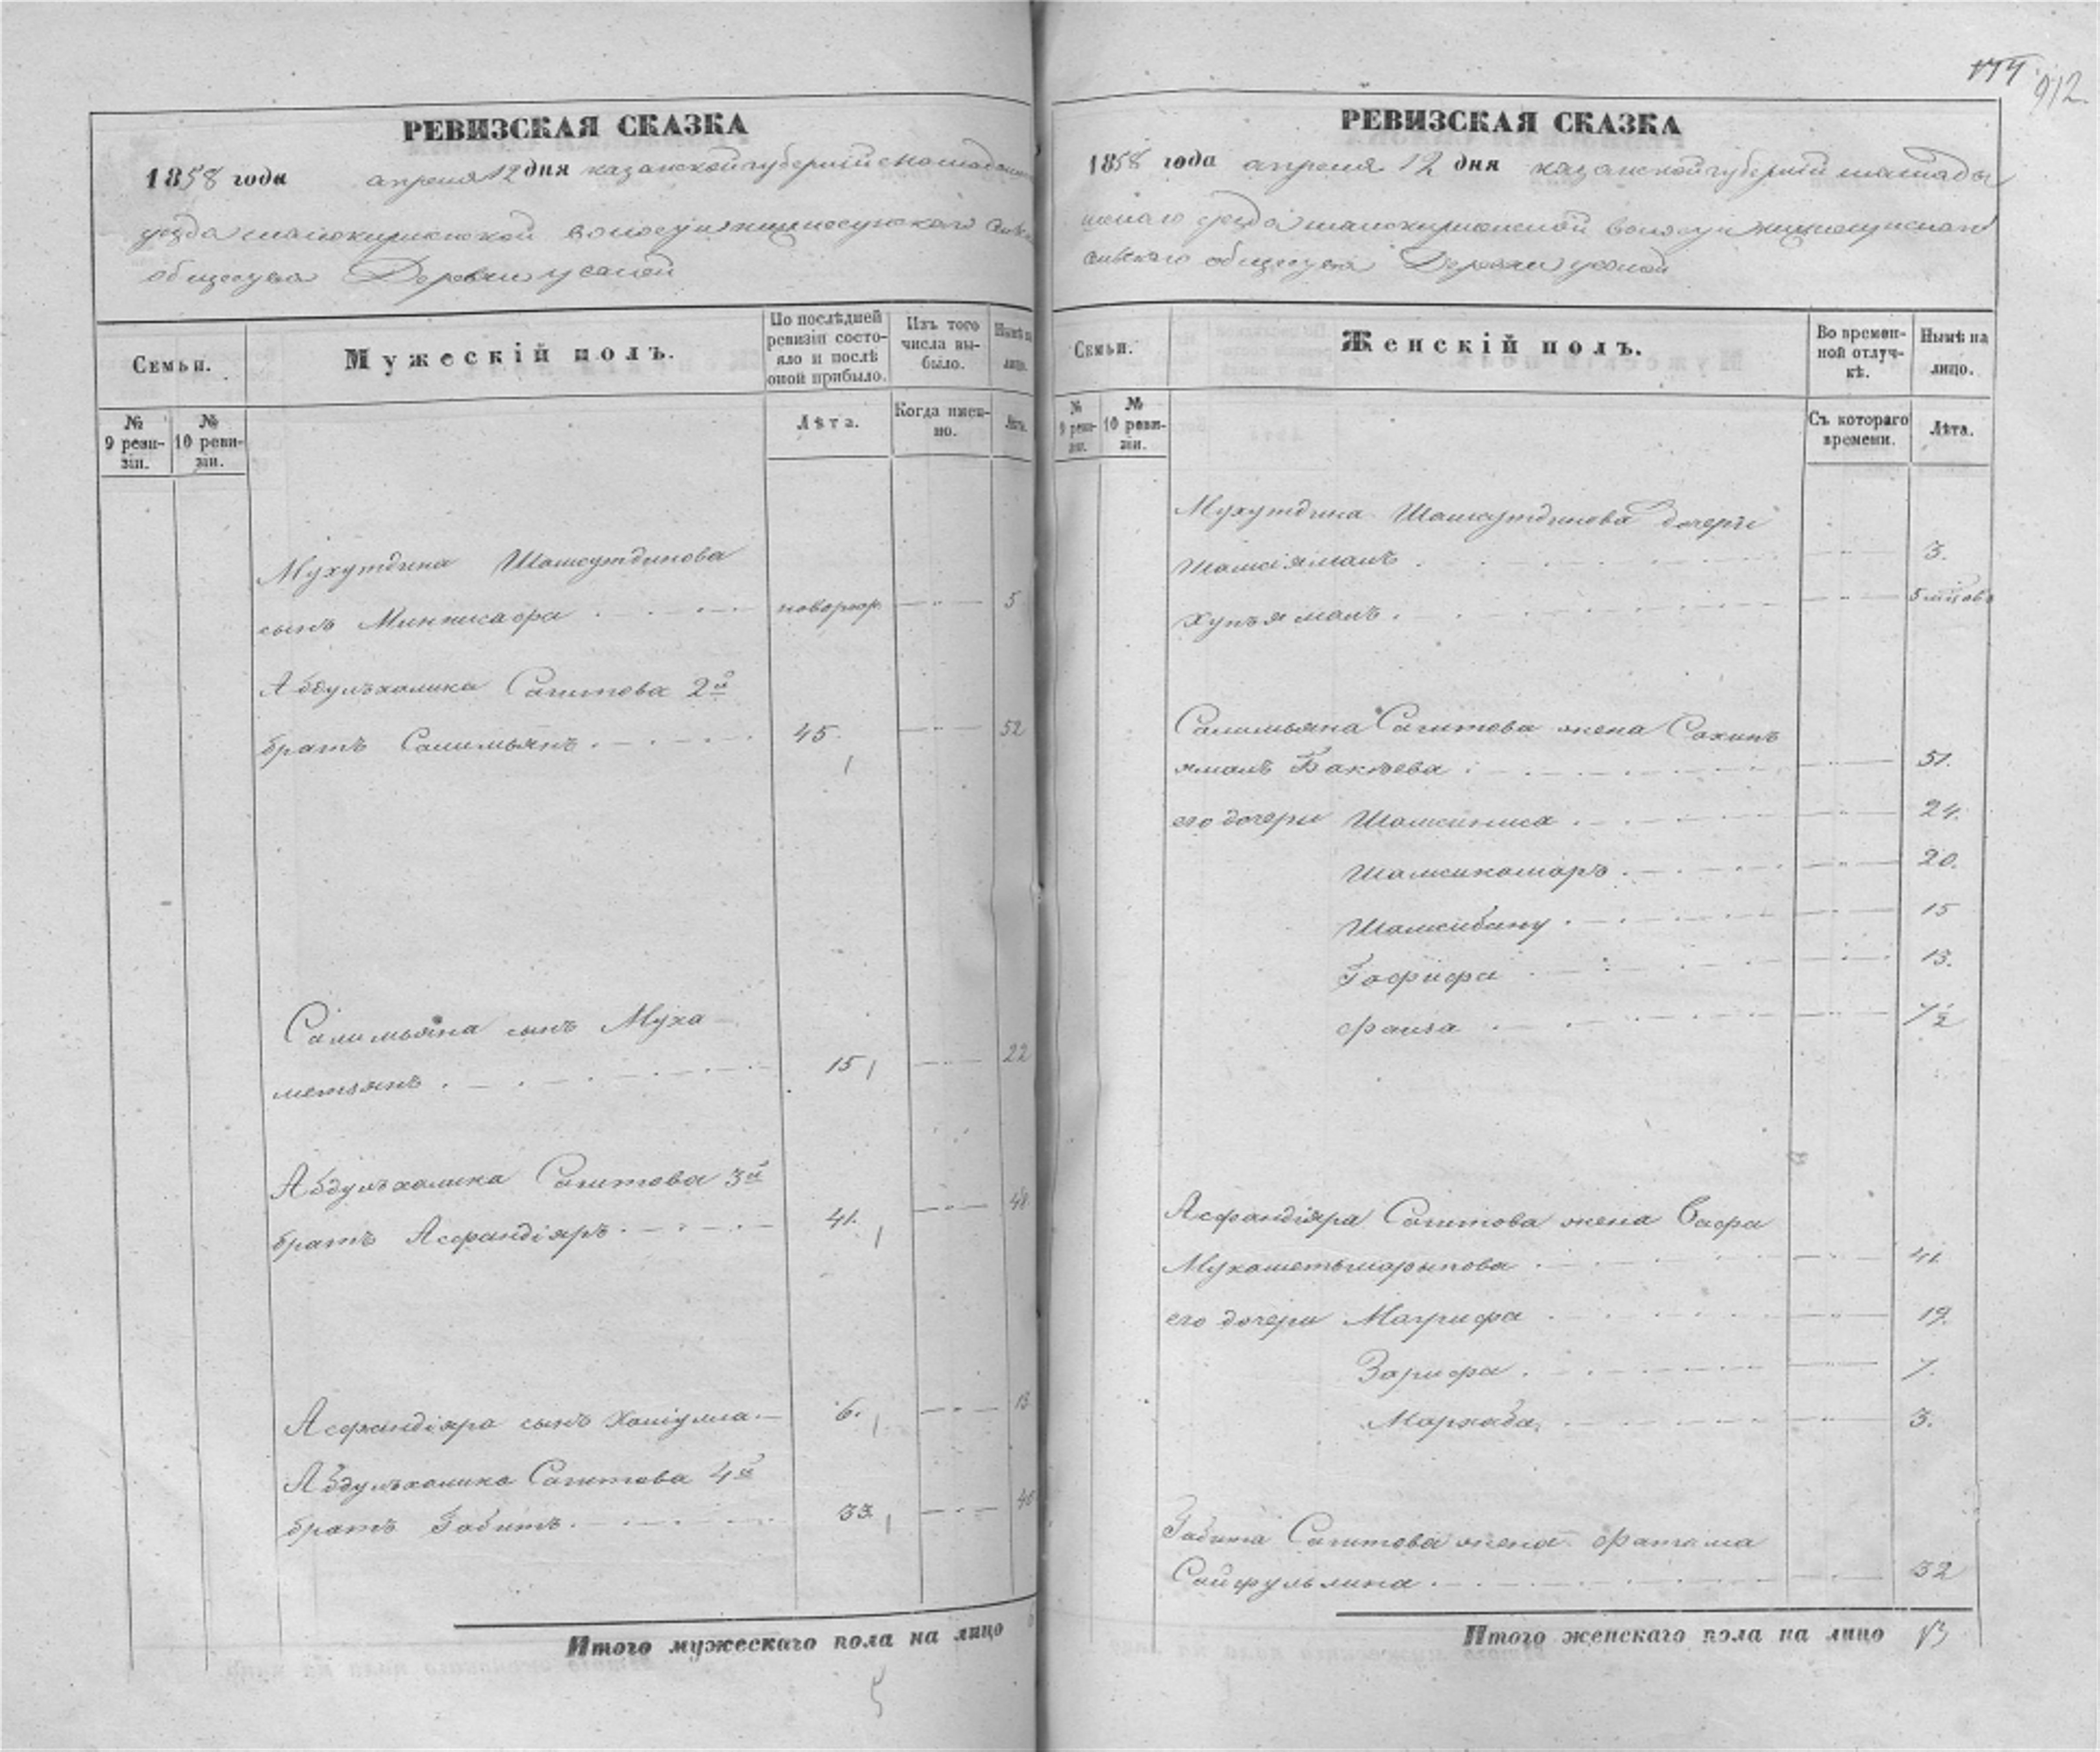 РЕВИЗСКАЯ СКАЗКА
1858 года апреля 12 дня казанской губерніи
уезда волости сельскаго
общества Деревни
Семьи.
Мужескій полъ.
По послѣдней ревизіи состояло и послѣ оной прибыло.
Изъ того числа выбыло.
Нынѣ на лицо.
№ 9 ревизіи.
№ 10 ревизіи.
Лѣта.
Когда именно.
Лѣта.
Мухутдина Шамсутдинова
сынъ новорож. 5
Абдулъхалика Сагитова 2й
братъ Салимьянъ 45. 52
Салимьяна сынъ Муха-
метьянъ 15 22
Абдулъхалика Сагитова 3й
братъ Асфандіяръ 41. 48
Асфандіяра сынъ 6. 13
Абдулъхалика Сагитова 4й
братъ Габитъ 33. 40
Итого мужескаго пола на лицо
5
912.
РЕВИЗСКАЯ СКАЗКА
1858 года апреля 12 дня казанской губерніи мамады
шскаго уезда волости
сельскаго общества Деревни
Семьи.
Женскій полъ.
Во временной отлучкѣ.
Нынѣ на лицо.
№ 9 ревизіи.
№ 10 ревизіи.
Съ котораго времени.
Лѣта.
Мухутдина Шамсутдинова дочери
Шамсіямалъ 3.
Хупъямалъ 5
Салимьяна Сагитова жена Сахипъ
ямалъ Бакѣева 51.
его дочери Шамсиниса 24.
Шамсикамаръ 20.
Шамсибану 15
Гафифа 13.
Фаиза ½
Асфандіяра Сагитова жена Сафа
41
его дочери Магрифа 19.
Зарифа 7.
Мархаба 3.
Габита Сагитова жена Фатима
Сайфульлина 32
Итого женскаго пола на лицо 13